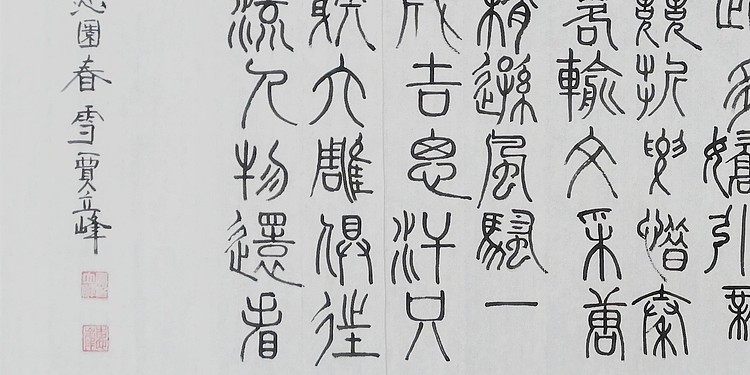 此多嬌引無
競折腰惜秦
略輸文采唐
稍遜風騷一
成吉思汗只
射大雕俱往
流人物還看
沁園春雪賈立峰